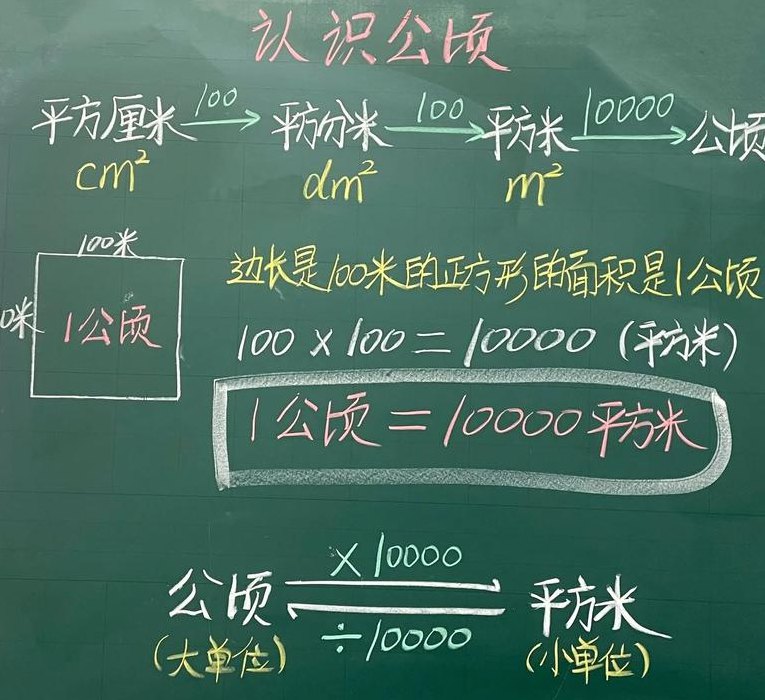 认识公顷
平方厘米 100 平方分米 100 平方米 10000 公顷
cm² dm² m²
100米
0米 1公顷
边长是100米的正方形的面积是1公顷
100×100=10000(平方米)
1公顷=10000平方米
×10000
公顷 平方米
÷10000
(大单位) (小单位)